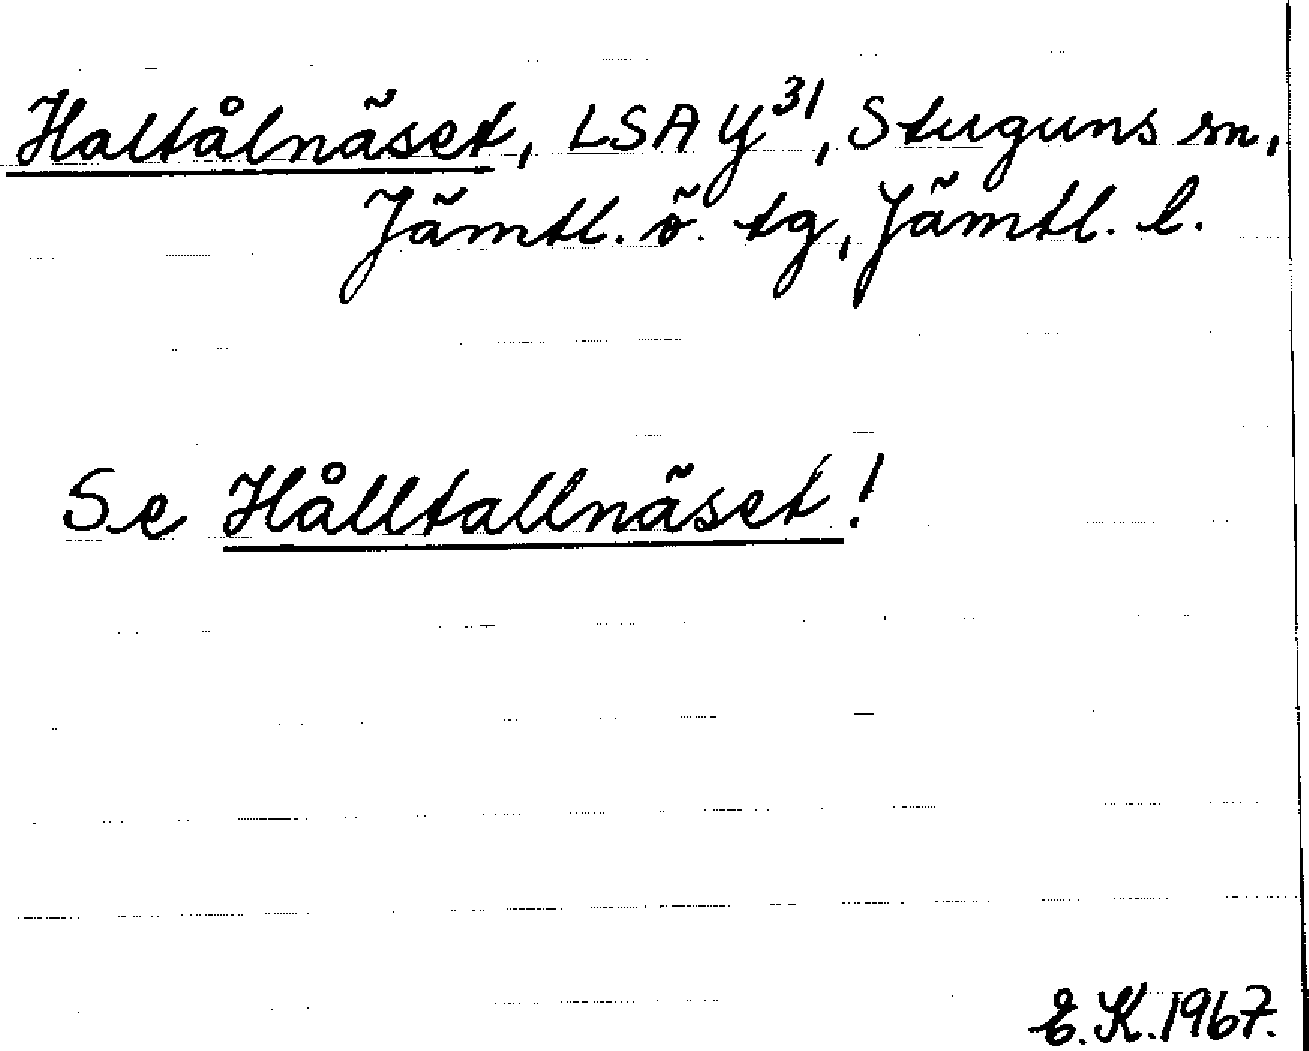 Haltålnäset, LSA Y³¹, Stuguns sn,
Jämtl. ö. tg, Jämtl. l.
Se Hålltallnäset!
E.K. 1967.